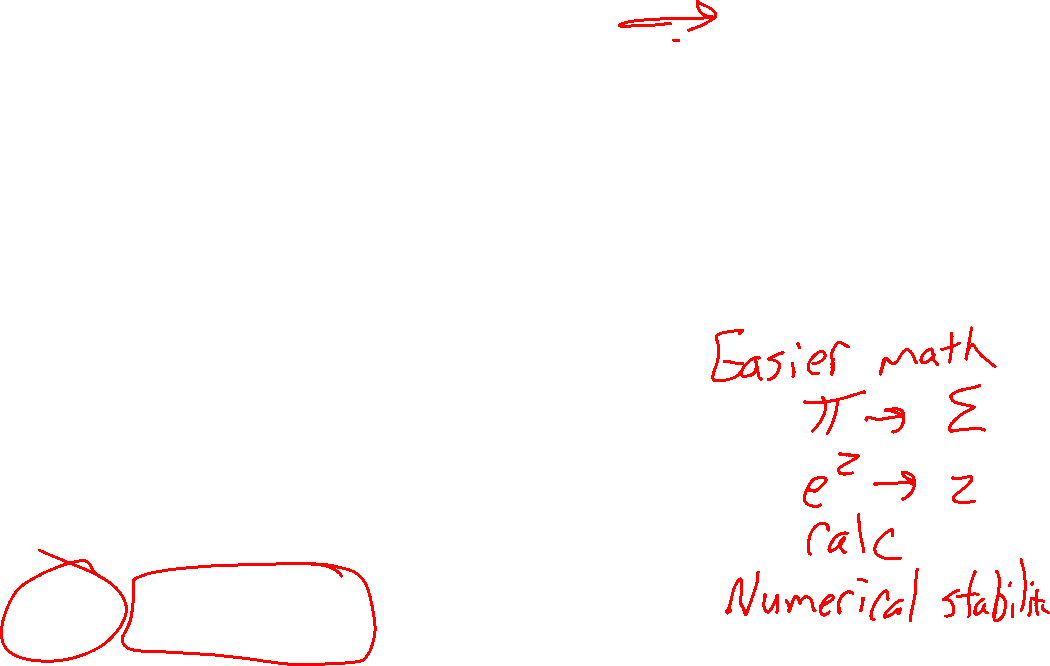 Easier math
π → Σ
e^z → z
calc
Numerical stabilit